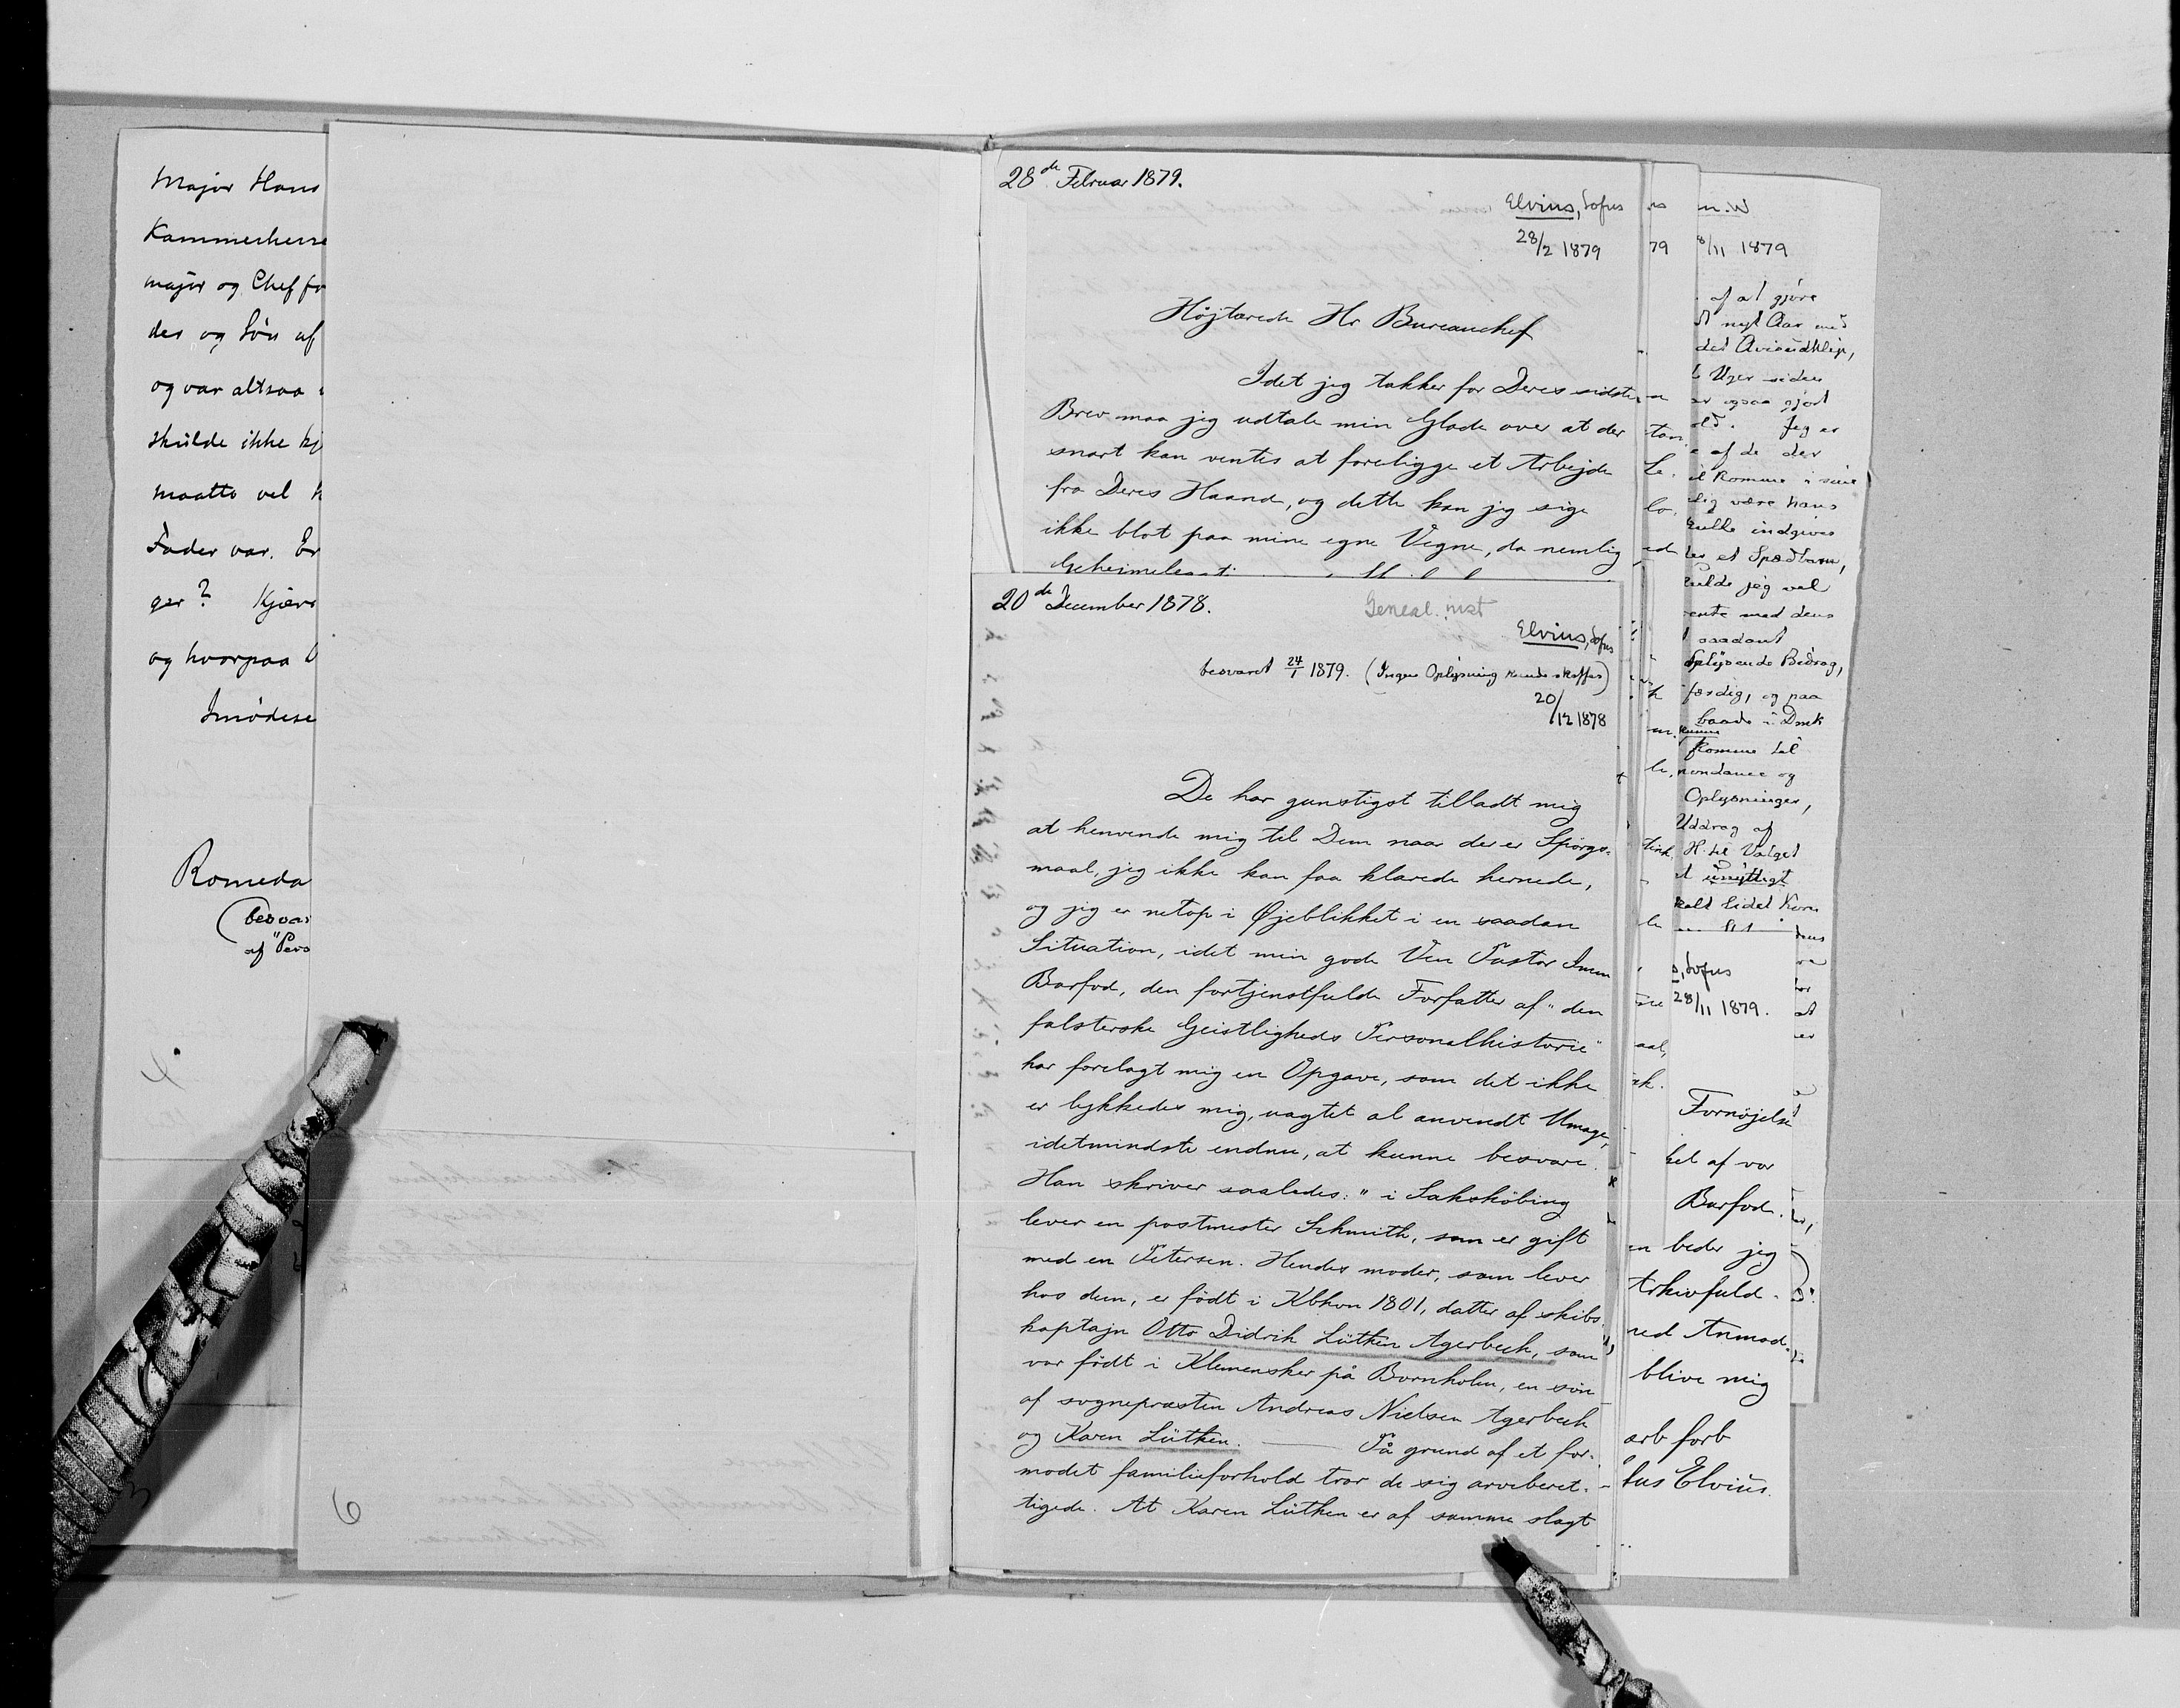 Major Hans
Kammerherre
major og Chef fo
des og Søn af
og var altsaa
skulde ikke kj
maatte vel
Fader var. Er
ger? Kjære
og hvorpaa
Imødese
Romeda
(besvar
af "Pers
6
28de Februar 1879.
Elvius, Sofus
28/2 1879
Højtærede Hr Bureauchef
Idet jeg takker for Deres sidste
Brev maa jeg udtale min Glæde over at der
snart kan ventes at foreligge et Arbejde
fra Deres Haand, og dette kan jeg sige
ikke blot paa mine egne Vegne, da nemlig
20de December 1878.
Geneal. inst
Elvius, Sofus
besvaret 24/1 1879. (Ingen Oplysning kunde skaffes)
20/12 1878
De har gunstigst tilladt mig
at henvende mig til Dem naar der er Spörgs-
maal, jeg ikke kan faa klarede hernede,
og jeg er netop i Øjeblikket i en saadan
Situation, idet min gode Ven Pastor Imm
Barfod, den fortjenstfulde Forfatter af "den
falsterske Geistligheds Personalhistorie"
har forelagt mig en Opgave, som det ikke
er lykkedes mig, uagtet al anvendt Umage,
idetmindste endnu, at kunne besvare.
Han skriver saaledes: "i Sakskøbing
lever en postmester Schmith, som er gift
med en Petersen. Hendes moder, som lever
hos dem, er født i Kbhvn 1801, datter af skibs-
kaptajn Otto Didrik Lütken Agerbech, som
var født i Klemensker på Bornholm, en søn
af sognepræsten Andreas Nielsen Agerbech
og Karen Lütken. — På grund af et for-
modet familieforhold tror de sig arveberet-
tigede. At Karen Lütken er af samme slægt
79
8/11 1879
af at gjøre
nyt Aar med
det Avisudklip,
Uger siden
ogsaa gjort
Jeg er
af de der
komme i sine
lig være hans
indgives
et Spædbarn,
jeg vel
med dens
saadant
Oplysende Bidrag,
færdig, og paa
baade i Druk
komme til
og
Oplysninger,
Uddrag af
H. til Valget
unyttigt
lidet Korn
s, Sofus
28/11 1879.
Fornøjelse
af vor
Barfod.
beder jeg
Arkivfuld-
Anmod-
blive mig
arb forb
fus Elvius.